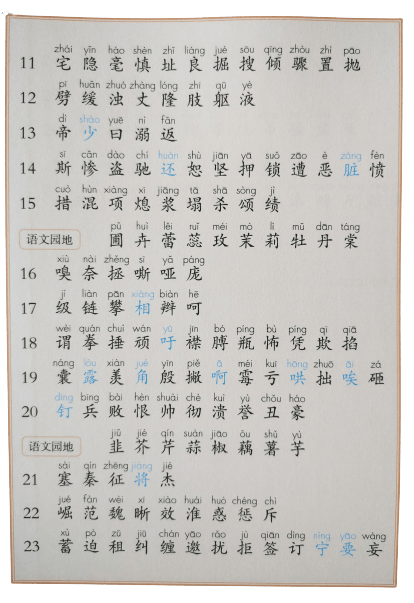 zhái yǐn háo shèn zhǐ liáng jué sōu qīng zhòu zhì pāo
11 宅 隐 毫 慎 址 良 掘 搜 倾 骤 置 抛
pī huǎn zhuó zhàng lóng zhī qū yè
12 劈 缓 浊 丈 隆 肢 躯 液
dì shào yuē nì fǎn
13 帝 少 曰 溺 返
sī cǎn dào chí huán shù jiān yā suǒ zāo è zāng fèn
14 斯 惨 盗 驰 还 恕 坚 押 锁 遭 恶 脏 愤
cuò hùn xiàng xī jiāng tā shā sòng jì
15 措 混 项 熄 浆 塌 杀 颂 绩
pǔ huì léi ruǐ méi mò lì mǔ dān táng
语文园地 圃 卉 蕾 蕊 玫 茉 莉 牡 丹 棠
xiù nài zhěng sī yā páng
16 嗅 奈 拯 嘶 哑 庞
jí liàn pān xiàng biàn hē
17 级 链 攀 相 辩 呵
wèi quán chuí wán yū jīn bó píng bù píng qī qiā
18 谓 拳 捶 顽 吁 襟 膊 瓶 怖 凭 欺 掐
náng lòu xiàn jué yīn piē ā méi kuī hòng zhuō āi zá
19 囊 露 羡 角 殷 撇 啊 霉 亏 哄 拙 唉 砸
dìng bīng bài hèn shuài chè kuì yù chǒu háo
20 钉 兵 败 恨 帅 彻 溃 誉 丑 豪
jiǔ jiè qín suàn jiāo ǒu shǔ yù
语文园地 韭 芥 芹 蒜 椒 藕 薯 芋
sài qín zhēng jiàng jié
21 塞 秦 征 将 杰
jué fàn wèi xī xiào huái huò chéng chì
22 崛 范 魏 晰 效 淮 惑 惩 斥
xù pò zū jiū chán yāo rǎo jù qiān dìng nìng yāo wàng
23 蓄 迫 租 纠 缠 邀 扰 拒 签 订 宁 要 妄